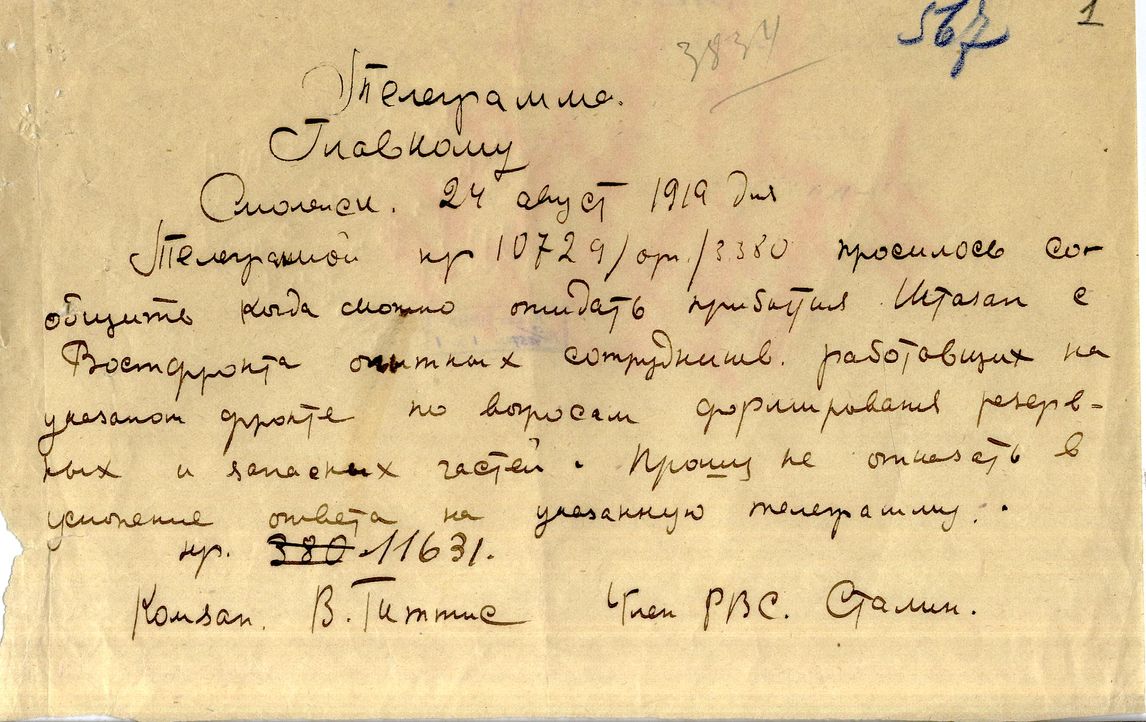 567 1
3834
Телеграмма.
Главкому
Смоленск. 24 август 1919 дня
Телеграмой нр 10729/ори/3.380 просилось со-
общить когда можно ожидать прибытия Штазап с
Востфронта опытных сотрудников. работавших на
указаном фронте по вопросам формирования резерв-
ных и запасных частей. Прошу не отказать в
ускорение ответа на указанную телеграмму.
нр. 380 11631.
Комзап. В. Гиттис Член РВС. Сталин.